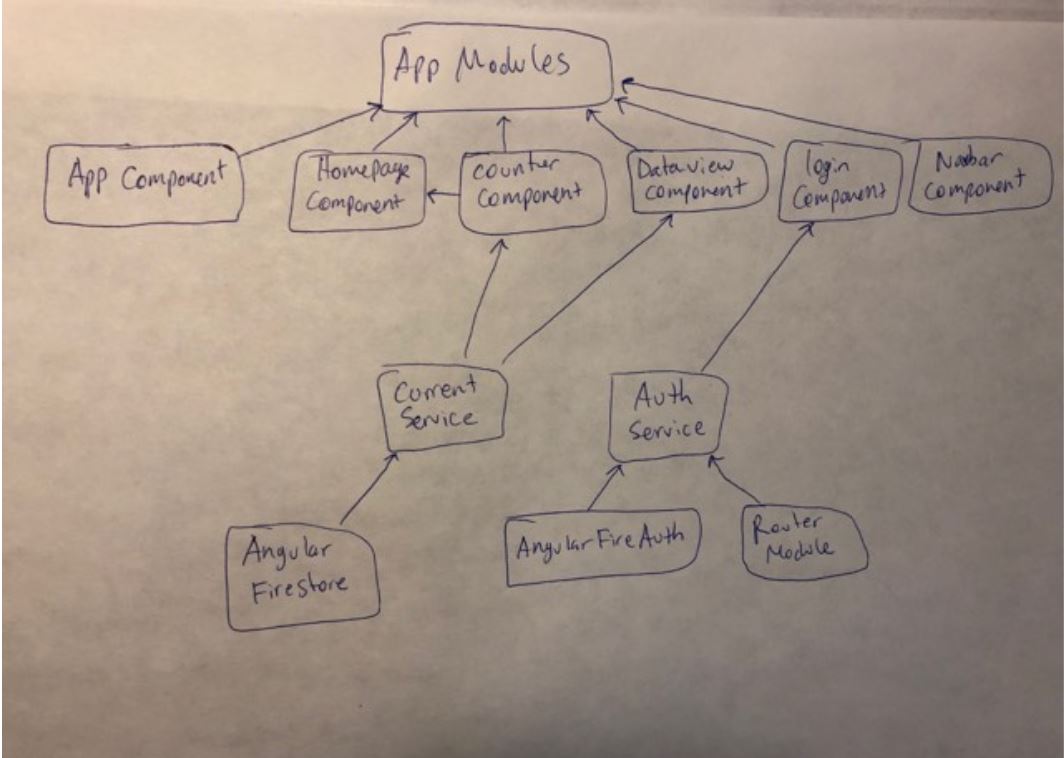 App Modules
App Component
Homepage
Component
counter
component
Dataview
component
login
Component
Navbar
Component
Current
Service
Auth
Service
Angular
Firestore
AngularFireAuth
Router
Module